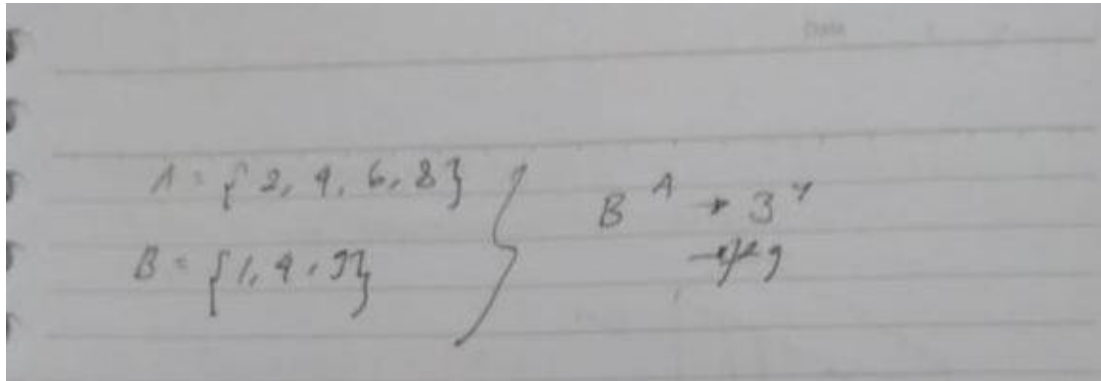 Date
A = {2, 4, 6, 8}
B = {1, 4, 9}
B^A → 3^4
→ 9